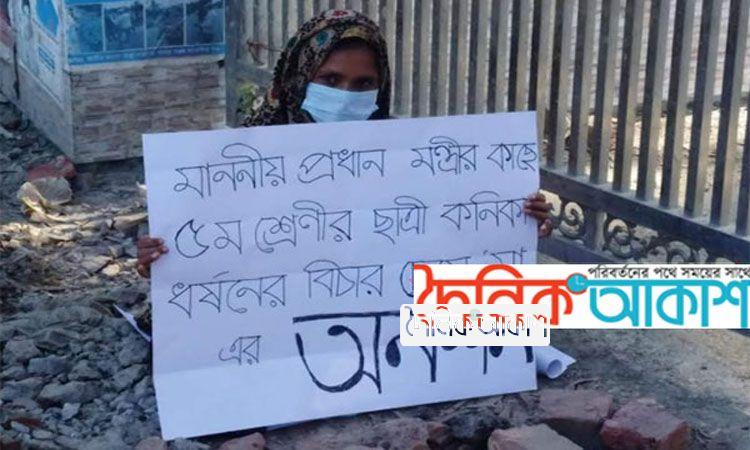 মাননীয় প্রধান মন্ত্রীর কাছে
৫ম শ্রেণীর ছাত্রী কনিক
ধর্ষনের বিচার
এর
পরিবর্তনের পথে সময়ের সাথে
দৈনিক আকাশ
দৈনিক আকাশ